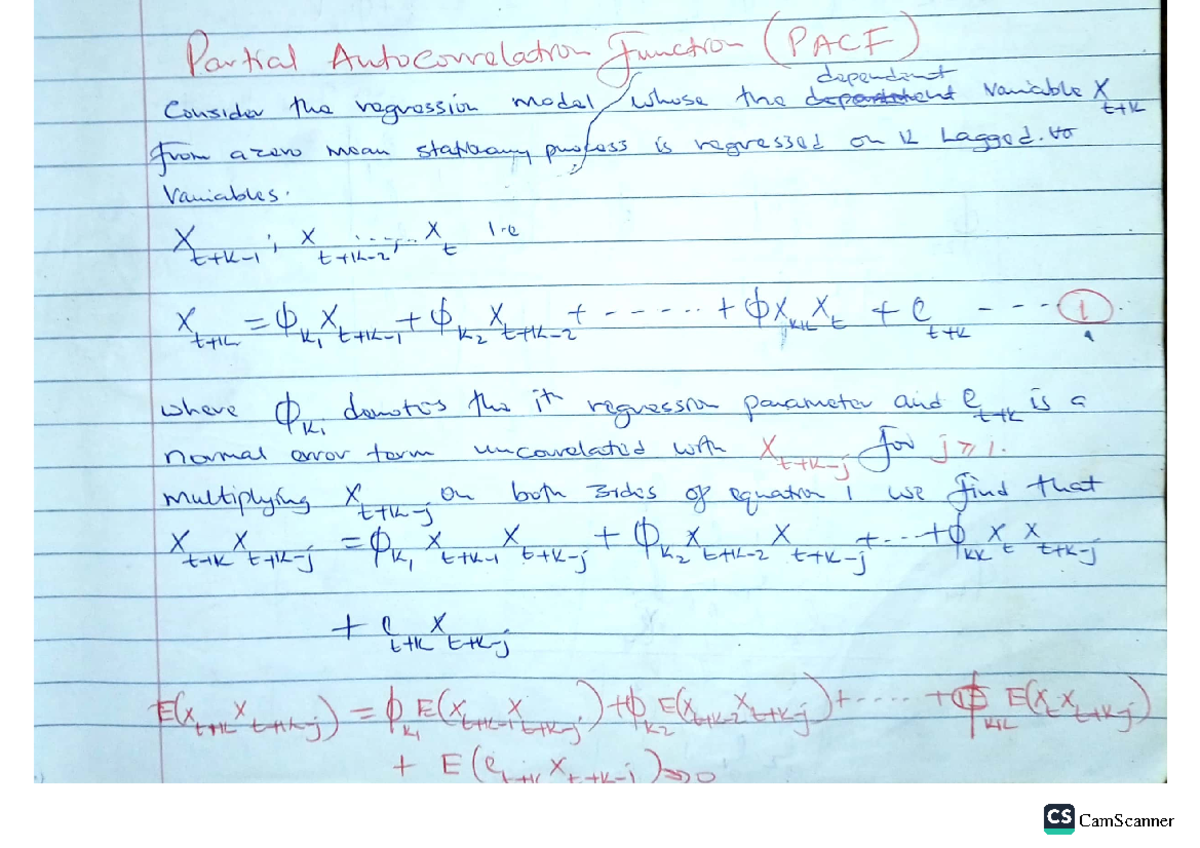 Partial Autocorrelation Function (PACF)
dependent
Consider the regression model whose the dependent variable X_{t+k}
from a zero mean stationary process is regressed on k Lagged. va
variables.
X_{t+k-1}; X_{t+k-2}, ..... X_t i.e
X_{t+k} = ϕ_{k1} X_{t+k-1} + ϕ_{k2} X_{t+k-2} + ------ + ϕX_{kk} X_t + e_{t+k} - - - (1).
where ϕ_{ki} denotes the ith regression parameter and e_{t+k} is a
normal error term uncorrelated with X_{t+k-j} for j ≥ 1.
multiplying X_{t+k-j} on both sides of equation 1 we find that
X_{t+k} X_{t+k-j} = ϕ_{k1} X_{t+k-1} X_{t+k-j} + ϕ_{k2} X_{t+k-2} X_{t+k-j} + ... + ϕ_{kk} X_t X_{t+k-j}
+ e_{t+k} X_{t+k-j}
E(X_{t+k} X_{t+k-j}) = ϕ_{k1} E(X_{t+k-1} X_{t+k-j}) + ϕ_{k2} E(X_{t+k-2} X_{t+k-j}) + ...... + ϕ_{kk} E(X_t X_{t+k-j})
+ E(e_{t+k} X_{t+k-j}) 0
CS CamScanner